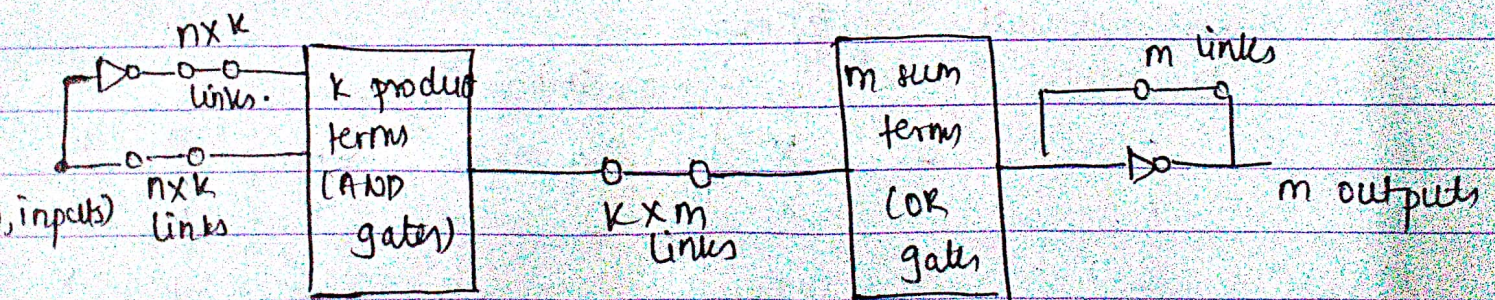 n x k
links.
n x k
links
, inputs)
k product
terms
(AND
gates)
k x m
links
m sum
terms
(OR
gates
m links
m outputs